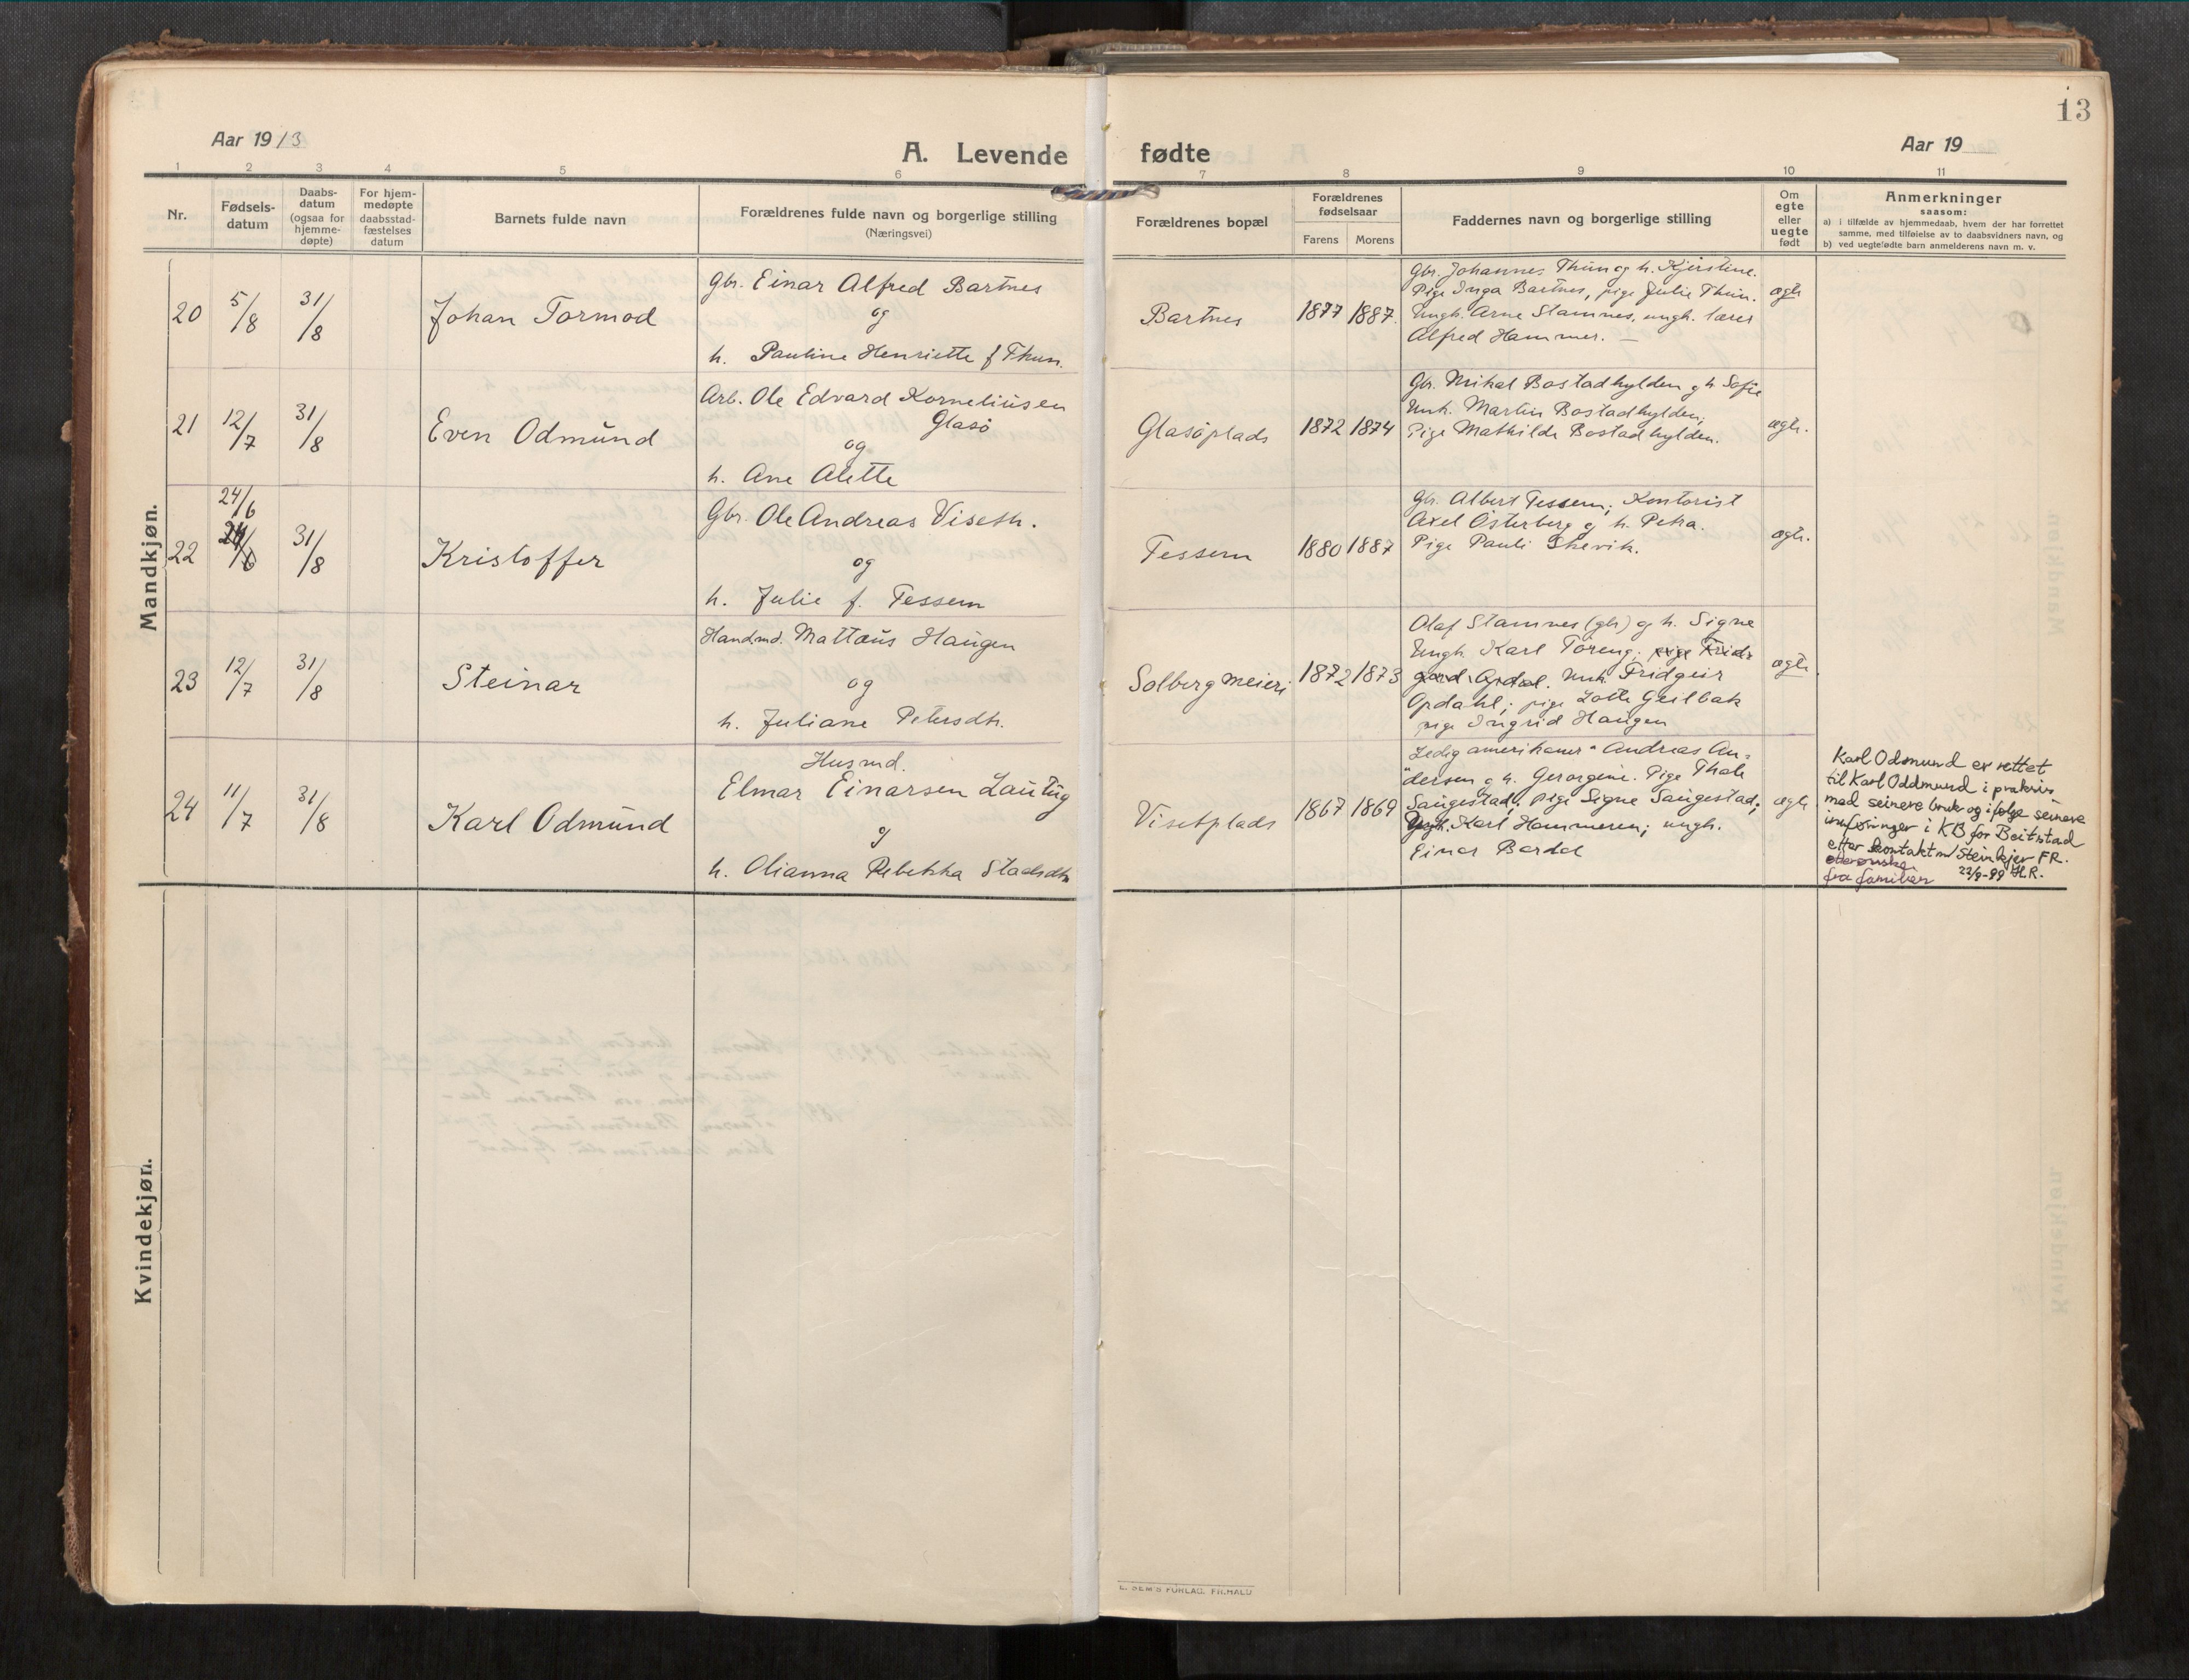 13
Aar 1913
A. Levende fødte
Aar 19
1 2 3 4 5 6 7 8 9 10 11
Nr.
Fødsels-
datum
Daabs-
datum
(ogsaa for
hjemme-
døpte)
For hjem-
medøpte
daabsstad-
fæstelses
datum
Barnets fulde navn
Forældrenes fulde navn og borgerlige stilling
(Næringsvei)
Forældrenes bopæl
Forældrenes
fødselsaar
Farens Morens
Faddernes navn og borgerlige stilling
Om
egte
eller
uegte
født
Anmerkninger
saasom:
a) i tilfælde av hjemmedaab, hvem der har forrettet
samme, med tilføielse av to daabsvidners navn, og
b) ved uegtefødte barn anmelderens navn m. v.
Mandkjøn.
20
5/8
31/8
Johan Tormod
Gbr. Einar Alfred Bartnes
og
h. Pauline Henriette f Thun.
Bartnes
1877 1887.
Gbr. Johannes Thun og h. Kjerstine.
Pige Inga Bartnes, pige Julie Thun.
Ungk. Arne Stamnes, ungk. lærer
Alfred Hammer. —
ægte
21
12/7
31/8
Even Odmund
Arb. Ole Edvard Korneliusen
Glasö
og
h. Ane Alette
Glasöplads
1872 1874
Gbr. Mikal Bostadhylden g h Sofie
Unk. Martin Bostadhylden;
Pige Mathilde Bostadhylden.
ægte.
22
24/6
24/6
31/8
Kristoffer
Gbr. Ole Andreas Viseth.
og
h. Julie f. Tessem
Tessem
1880 1887
Gbr. Albert Tessem; Kontorist
Axel Österberg og h. Petra.
Pige Pauli
ægte.
23
12/7
31/8
Steinar
Handmd. Mattæus Haugen
og
h. Juliane Petersdtr.
Solberg meieri
1872 1873
Olaf Stamnes (gbr) og h. Signe
Ungk. Karl Töreng; pige Frid-
gard Opdal. Unk. Fridgeir
Opdahl; pige Lotte Geilbak
pige Ingrid Haugen
ægte
24
11/7
31/8
Karl Odmund
Husmd.
Elmar Einarsen Lautug
g
h. Olianna Rebekka Stadsdtr
Visetplads
1867 1869
Ledig "amerikaner" Andreas An-
dersen g h. Gerorgine. Pige Thale
Saugestad; pige Signe Saugestad;
Ungk. Karl Hammeren; ungk.
Einar Bardal
ægte
Karl Odmund er rettet
til Karl Oddmund i praksis
med seinere bruk og ifølge seinere
innføringer i KB for Beitstad
etter kontakt m/ Steinkjer FR.
etter ønske
fra familien 22/9-99 H.R.
Kvindekjøn.
E. SEM'S FORLAG, FR.HALD